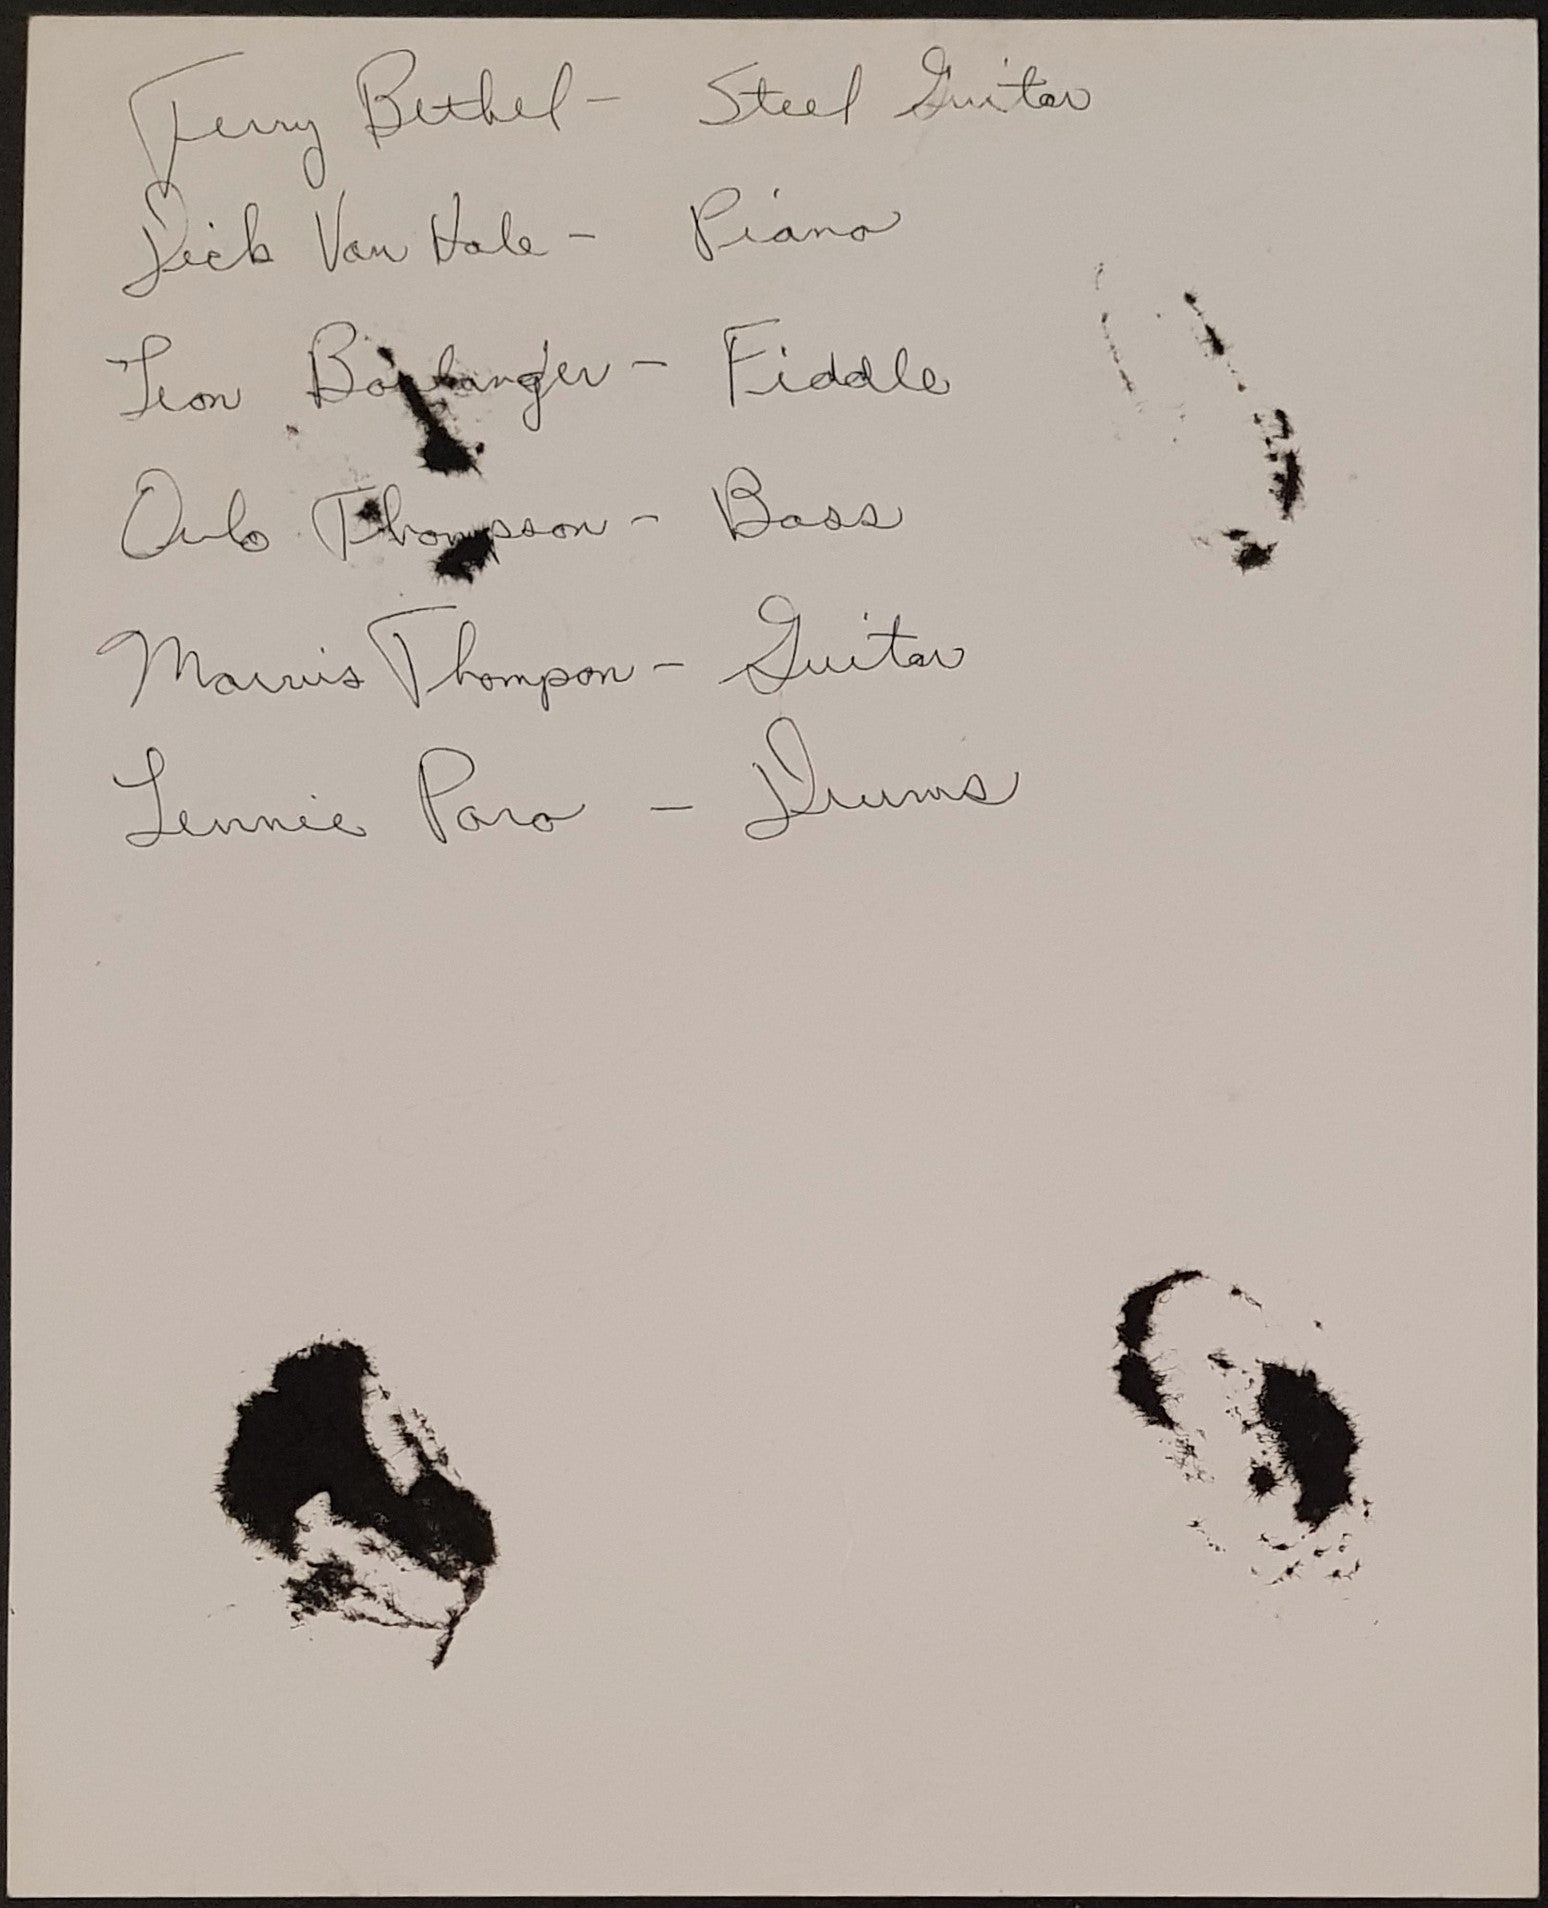 Terry Bethel - Steel Guitar
Dick Van Hale - Piano
Leon Boulanger - Fiddle
Thompson - Bass
Morris Thompon - Guitar
Lennie Paro - Drums